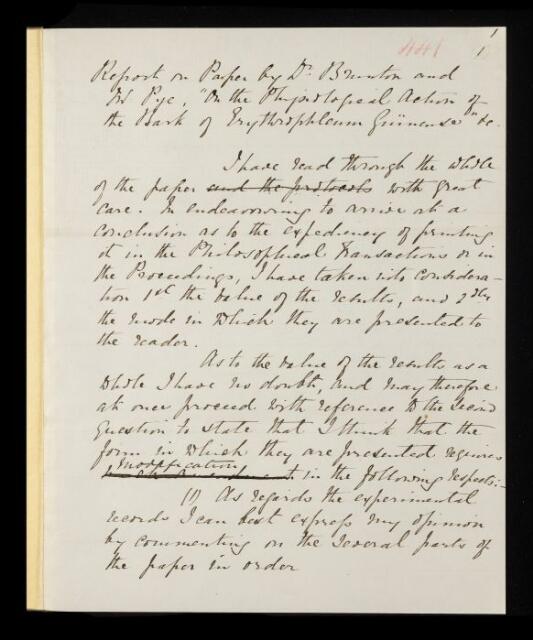 441
1
Report on Paper by Dr Brunton and
Mr Pye, "On the Physiological Action of
the Bark of Erythrophleum Guinense" &c.
I have read through the whole
of the paper and the protocols with great
care. In endeavouring to arrive at a
conclusion as to the expediency of printing
it in the Philosophical Transactions or in
the Proceedings, I have taken into considera-
tion 1st the value of the results, and 2dly
the mode in which they are presented to
the reader.
As to the value of the results as a
whole I have no doubt, and may therefore
at once proceed with reference to the second
question to state that I think that the
form in which they are presented requires
modification
in the following respects:-
(1) As regards the experimental
records I can best express my opinion
by commenting on the several parts of
the paper in order